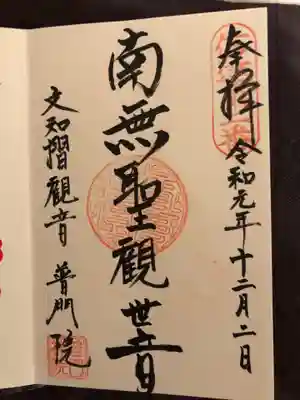 奉拝 令和元年十二月二日
南無聖觀世音
文知摺觀音 普門院